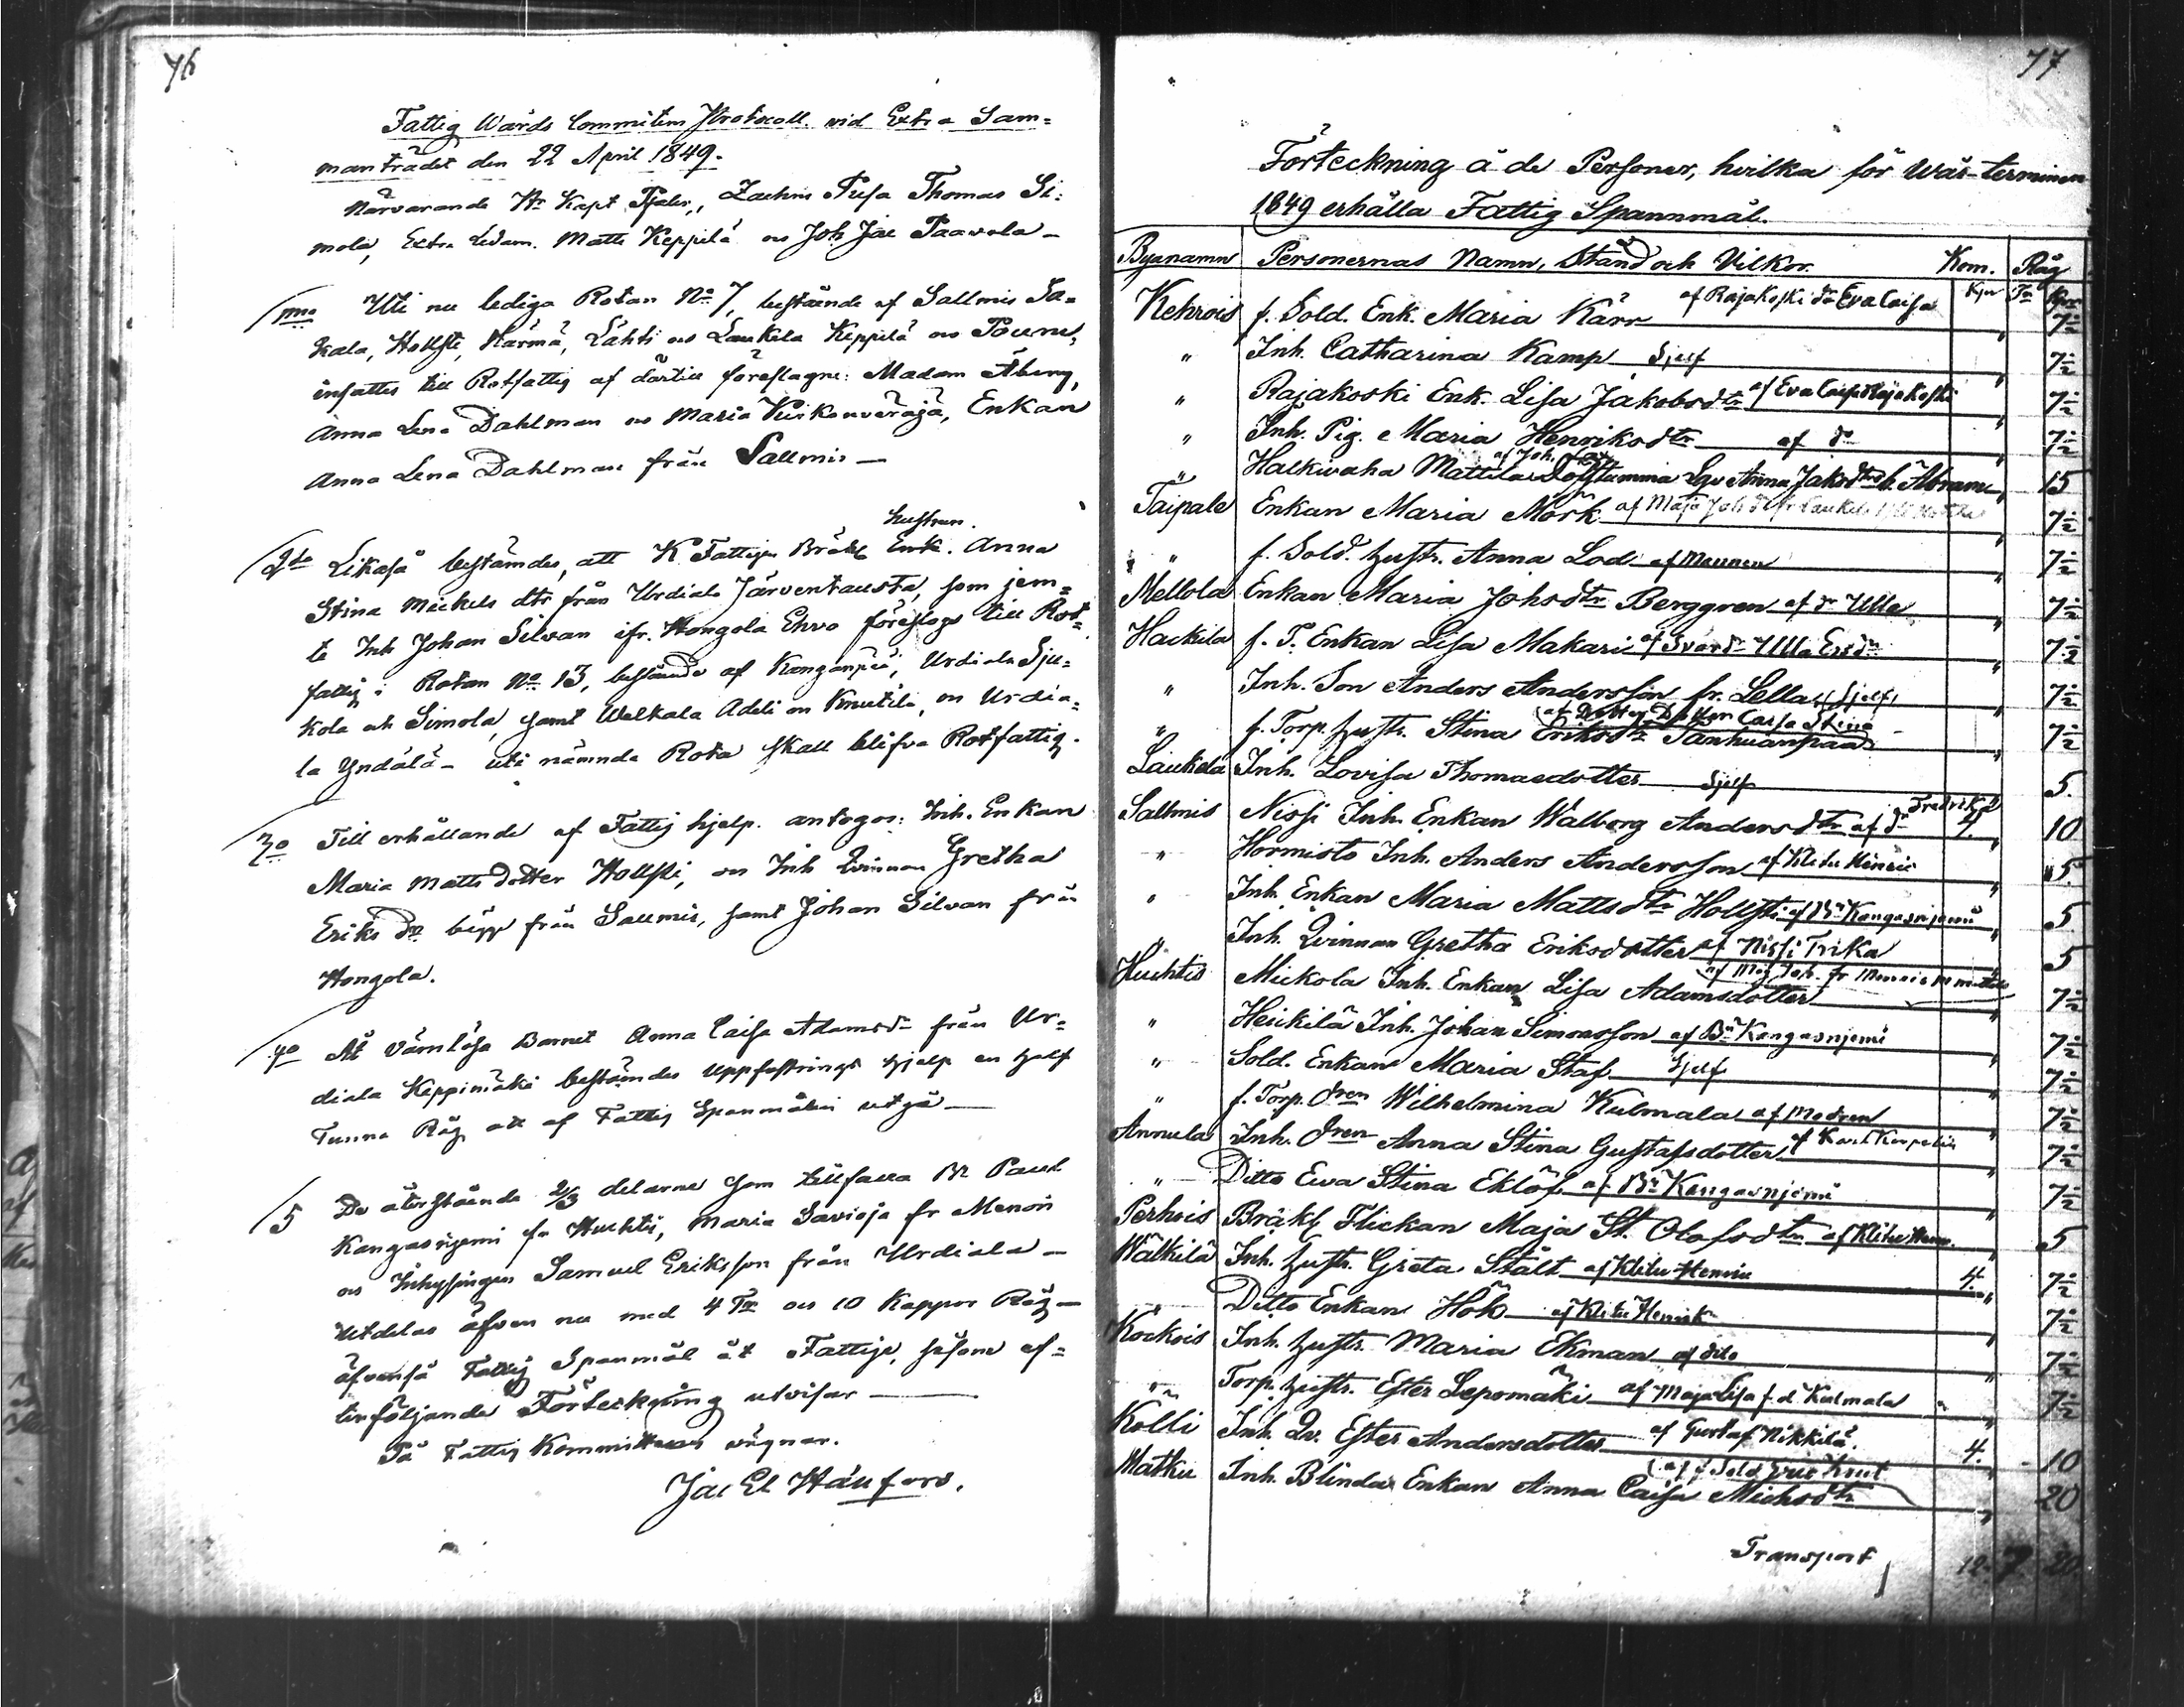 76
Fattig Wårds Committens Protocoll vid Extra Sam=
manträdet den 22 April 1849.
Närvarande Hr Kapt Zachris Thomas Si=
mola, Extra Ledam. Matts Keppilä oo Joh Jac Paavola —
1mo Uti nu lediga Rotan No 7, bestående af Sallmis Sa=
kala, Hollsti, Härmä, Lähti oo Laukela Keppilä oo
insattes till Rotfattig af dertill föreslagne: Madam Åberg,
Anna Lena Dahlman oo Maria Enkan
Anna Lena Dahlman från Sallmis —
hustrun.
2do Likaså bestämdes, att K Fattigen Bräckl Enk. Anna
Stina Mickels dtr från Urdiala Järventausta, som jem=
te Inh Johan Silvan ifr. Hongola Ehro föreslogs till Rot=
fattig i Rotan No 13, bestående af Kanganpää, Urdiala Sju=
kola och Simola, samt Walkala Adeli oo Knutila, oo Urdia=
la Yndälä — uti nämnda Rota skall blifva Rotfattig.
3o Till erhållande af Fattig hjelp. antogos: Inh. Enkan
Maria Mattsdotter Hollsti, oo Inh Qvinnan Gretha
Eriks dr bägge från Sallmis, samt Johan Silvan från
Hongola.
4o Åt värnlösa Barnet Anna Caisa Adamsdr från Ur=
diala Keppimäki bestämdes uppfostrings hjelp en half
Tunna Råg att af Fattig Spanmålen utgå —
5 De återstående 2/3 delarne som tillfalla Br Paul
Kangasnjemi fr Huhtis, Maria Savioja fr Menois
oo Inhysingen Samuel Eriksson från Urdiala —
utdelas äfven nu med 4 Tr oo 10 Kappor Råg —
äfvenså Fattig Spanmål åt Fattige, såsom ef=
terföljande Förteckning utvisar —
På Fattig Kommitteens vägnar.
Jac El Hällfors.
77
Förteckning å de Personer, hvilka för Wår-terminen
1849 erhålla Fattig Spannmål.
Byanamn Personernas Namn, Stånd och Vilkor. Korn. Råg
Kpr Tr Kpr
Kehrois f. Sold. Enk. Maria Kärr af Rajakoski dr Eva Caisa " 7½
" Inh. Catharina Kamp Sjelf " 7½
" Rajakoski Enk. Lisa Jakobsdtr af Eva Caisa Rajakoski " 7½
" Inh. Pig. Maria Henriksdtr af do " 7½
" Halkivaha Mattila Anna Jakosdtr " 15
Taipale Enkan Maria Mörk af Maja Joh dr fr Laukela " 7½
" f. Sold. hustr. Anna Lod af Mannen " 7½
Nellola Enkan Maria Johsdtr Berggren af dr Ulla " 7½
Hackila f. T. Enkan Lisa Makari af Svärdr Ulla Ersdr " 7½
" Inh. Son Anders Andersson fr. Lella (Sjelf) " 7½
" f. Torp. hustr. Stina Eriksdtr Tanhuanpää (af Dotter Caisa Stina " 7½
Laukela Inh. Lovisa Thomasdotter Sjelf 5.
Sallmis Nissi Inh. Enkan Walborg Andersdtr af dr Fredrika 4. 10
" Hormisto Inh. Anders Andersson af Klitu Henric " 5.
" Inh. Enkan Maria Mattsdtr Hollsti af Br Kangasnjemi " 5
" Inh. Qvinnan Gretha Eriksdotter af Nissi Trika " 5
Huhtis Mickola Inh. Enkan Lisa Adamsdotter af Maj Joh. fr Menois 7½
" Heickilä Inh. Johan Simonsson af Br Kangasnjemi " 7½
" Sold. Enkan Maria Staf Sjelf " 7½
" f. Torp. dren Wilhelmina Kulmala af Modren " 7½
Annula Inh. dren Anna Stina Gustafsdotter af Karl " 7½
" Ditto Ewa Stina Eklöf af Br Kangasnjemi " 7½
Perhois Bräkl Flickan Maja St. Olofsdtr af Klitu Henr. " 5
Wälkilä Inh. hustr. Greta Stält af Klitu Henric 4. 7½
Ditto Enkan Hök af Klitu Henrik 7½
Kockois Inh. hustr. Maria Ekman af dito 7½
" Torp. hustr. Ester Lepomäki af Maja Lisa f. d. Kulmala " 7½
Kolli Inh. Qv. Ester Andersdotter af Gustaf Nikkilä. 4. 10
Matku Inh. Blinda Enkan Anna Caisa Michsdtr (af f Sold Eric Knut " 20
Transport 12. 7 20